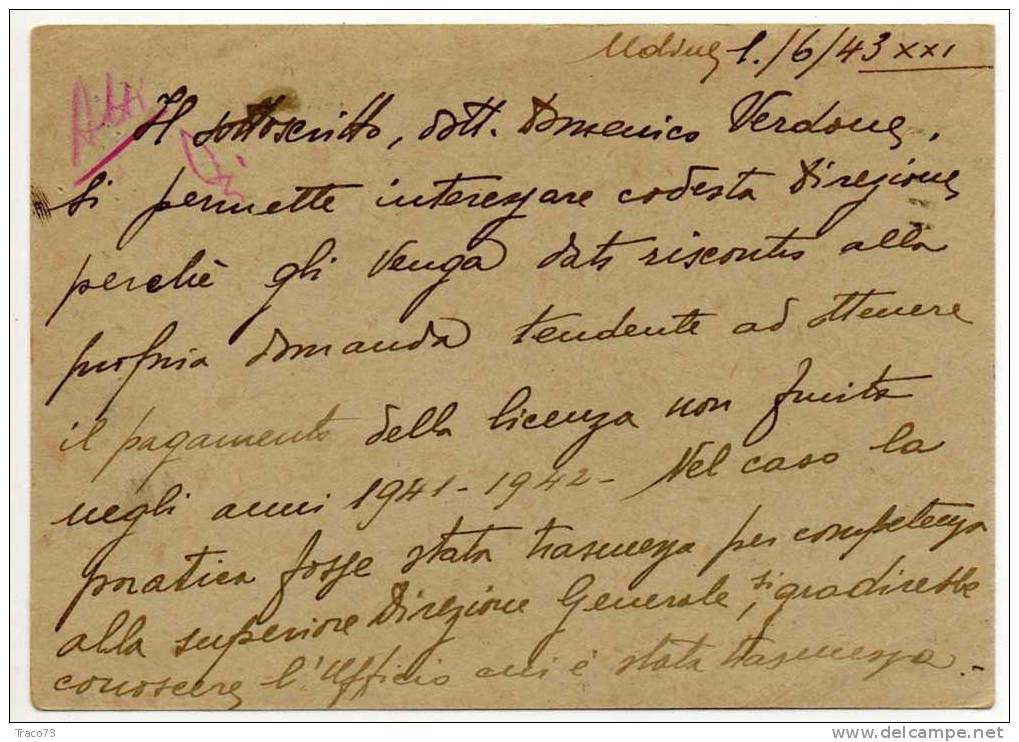 Udine 1./6/43 XXI
Atti
Il sottoscritto, dott. Domenico Verdone,
si permette interessare codesta Direzione
perchè gli venga dato riscontro alla
propria domanda tendente ad ottenere
il pagamento della licenza non fruita
negli anni 1941-1942- Nel caso la
pratica fosse stata trasmessa per competenza
alla superiore Direzione Generale, si gradirebbe
conoscere l'Ufficio cui è stata trasmessa.-
Traco73
www.delcampe.net